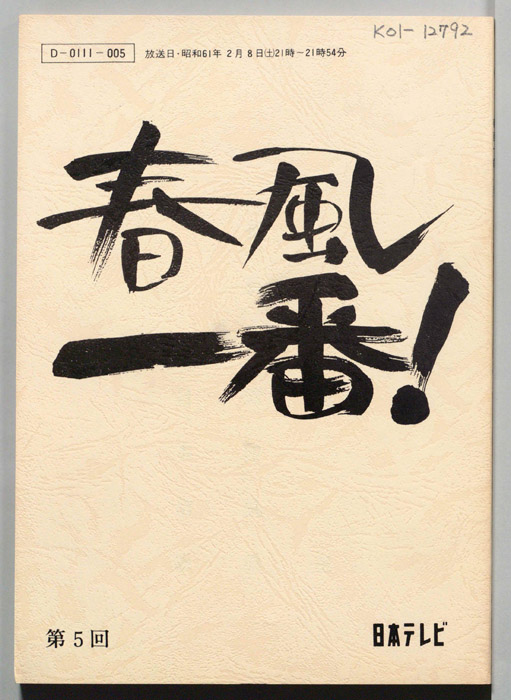 K01-12792
D-0111-005 放送日・昭和61年2月8日(土)21時-21時54分
春風
一番!
第5回
日本テレビ